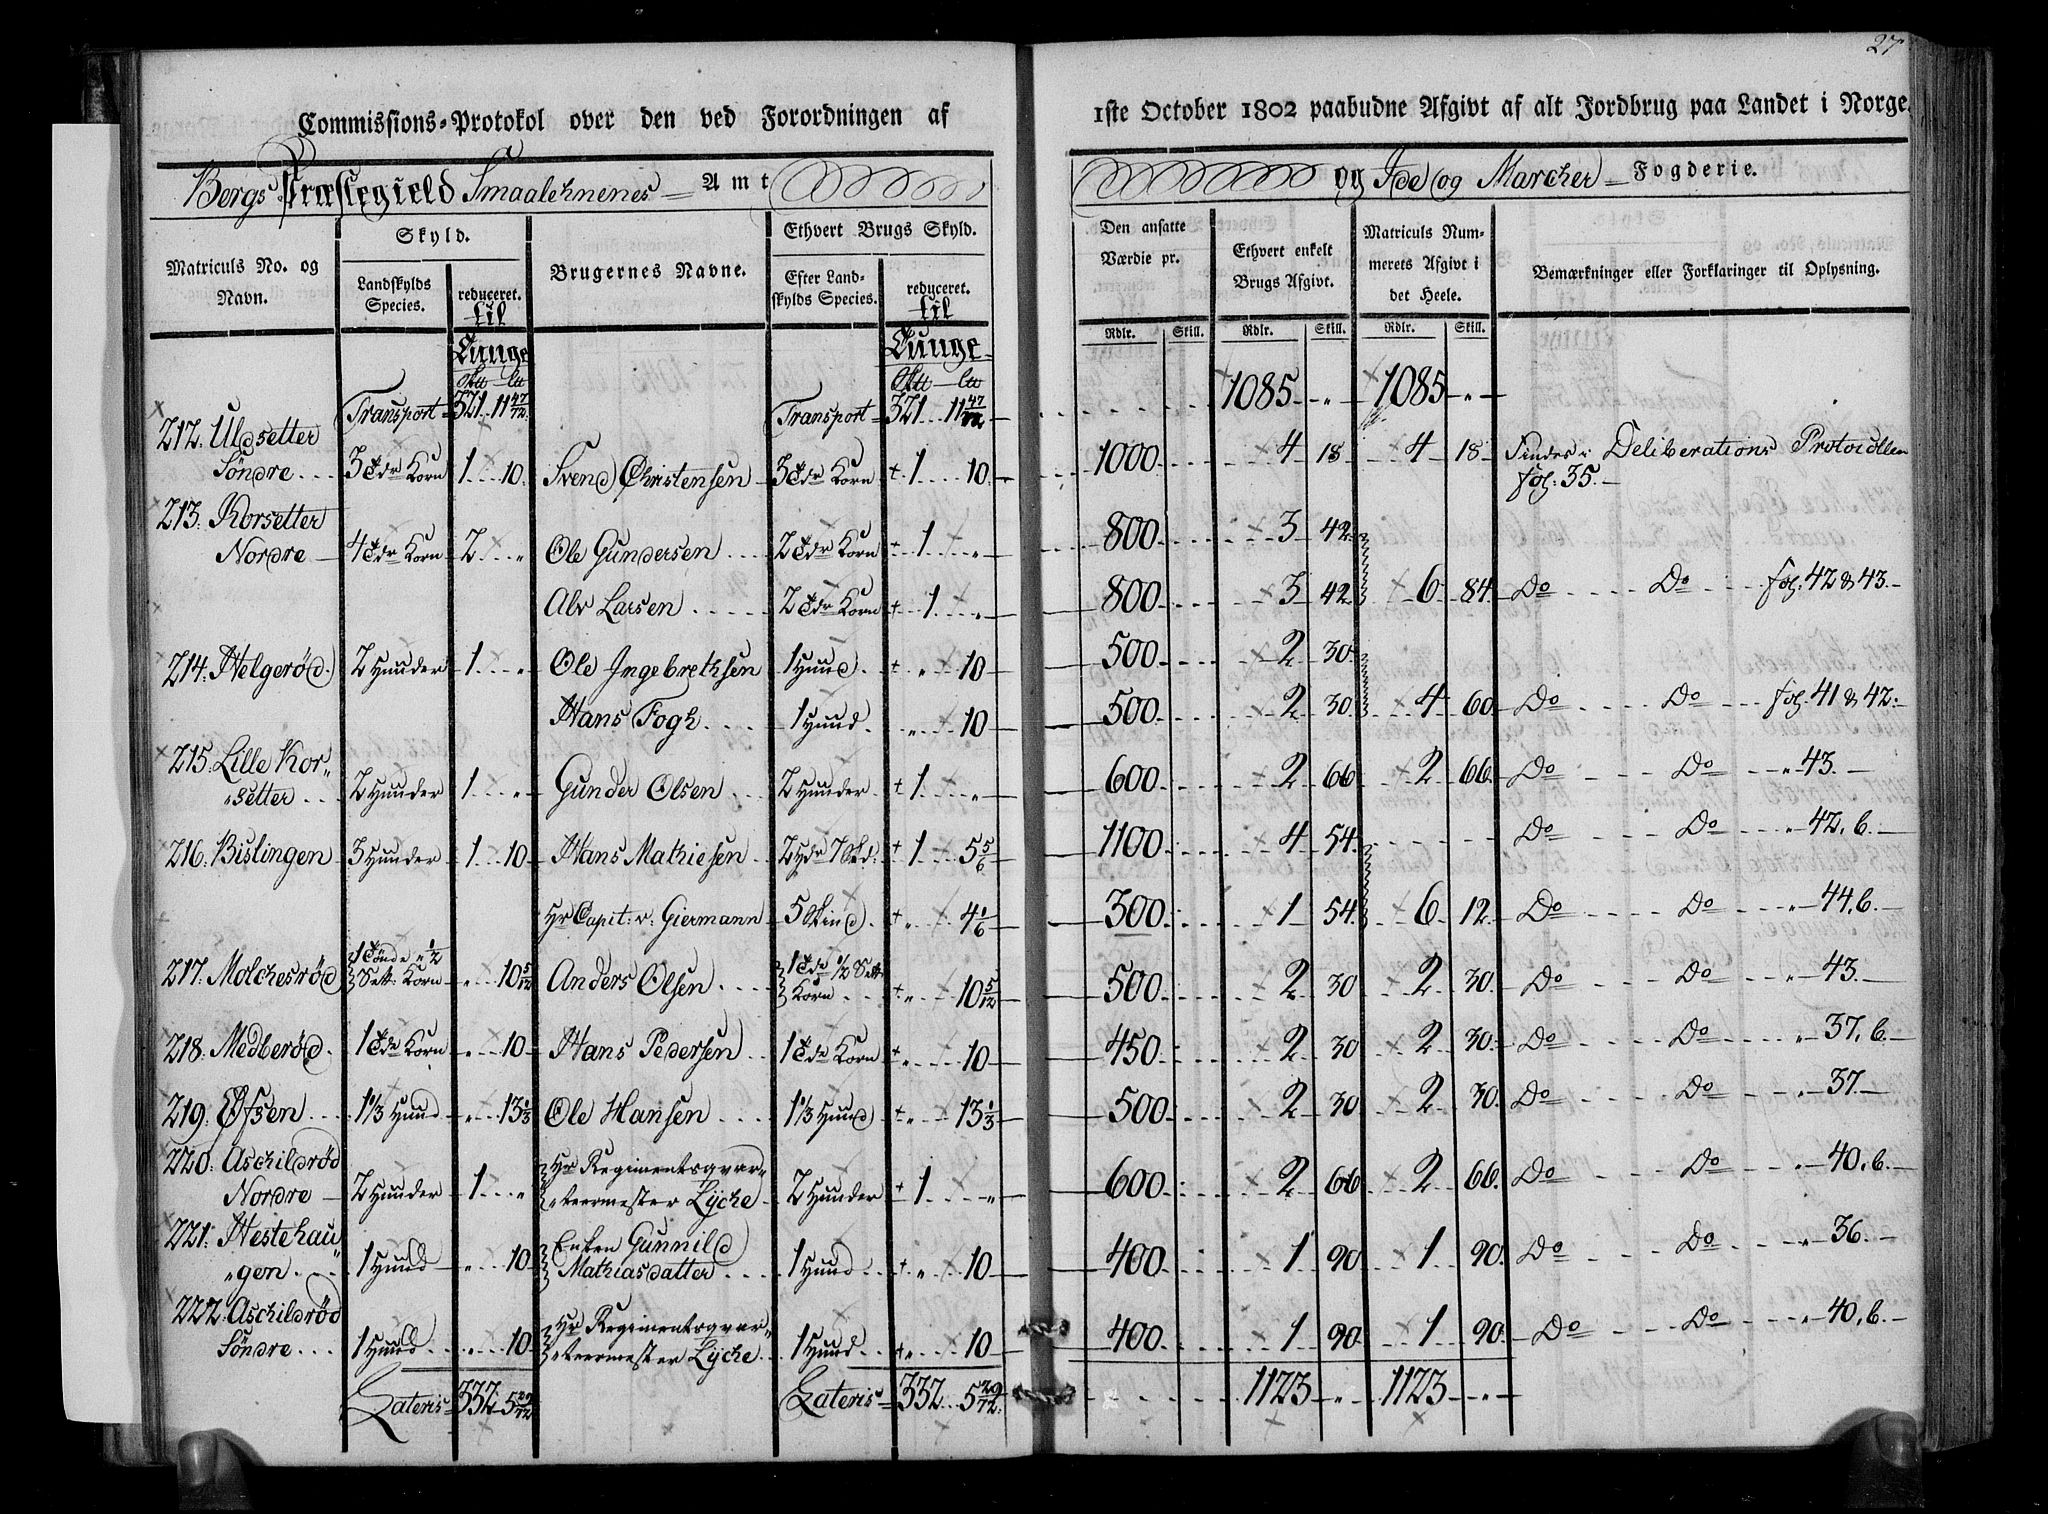 27
Commissions-Protokol over den ved Forordningen af 1ste October 1802 paabudne Afgivt af alt Jordbrug paa Landet i Norge.
Bergs Præstegield Smaalehnenes Amt og Ide og Marcher Fogderie.
Matriculs No. og Navn.
Skyld.
Landskylds Species.
reduceret. til Tunge
Brugernes Navne.
Ethvert Brugs Skyld.
Efter Landskylds Species.
reduceret. til Tunge
Den ansatte Værdie pr.
Rdlr. Skill.
Ethvert enkelt Brugs Afgivt.
Rdlr. Skill.
Matriculs Nummerets Afgivt i det Heele.
Rdlr. Skill.
Bemærkninger eller Forklaringer til Oplysning.
Transport 321 11 47/72 Transport 321 11 47/72 1085 " 1085 "
212. Uldsetter
Söndre 3 Tdr Korn 1 10 Svend Christensen 3 Tdr Korn 1 10 1000 4 18 4 18 Findes i Deliberations Protocollen
fol: 35.
213. Korsetter
Nordre 4 Tdr Korn 2 " Ole Gundersen 2 Tdr Korn 1 " 800 3 42
Alv Larsen 2 Tdr Korn 1 " 800 3 42 6 84 Do Do fol: 42 & 43.
214. Helgeröd 2 Hunder 1 " Ole Ingebrethsen 1 Hund " 10 500 2 30
Hans Fogh 1 Hund " 10 500 2 30 4 60 Do Do fol: 41 & 42.
215. Lille Kor"
"setter 2 Hunder 1 " Gunder Olsen 2 Hunder 1 " 600 2 66 2 66 Do Do " 43.
216. Bislingen 3 Hunder 1 10 Hans Mathiesen 2 Hdr 7 Skd: 1 5 5/6 1100 4 54 Do Do " 42, b.
Hr Capit: v: Giermann 5 Skind " 4 1/6 300 1 54 6 12 Do Do " 44, b.
217. Molchesröd 1 Tönde " 1/2 Sett: Korn " 10 5/12 Anders Olsen 1 Tde 1/2 Sett: Korn " 10 5/12 500 2 30 2 30 Do Do " 43.
218. Medberöd 1 Tde Korn " 10 Hans Pedersen 1 Tde Korn " 10 450 2 30 2 30 Do Do " 37, b.
219. Öfsen 1 1/3 Hund " 13 1/3 Ole Hansen 1 1/3 Hund " 13 1/3 500 2 30 2 30 Do Do " 37.
220. Aschildröd
Nordre 2 Hunder 1 " Hr Regimentsqvar"
"teermester Lÿche 2 Hunder 1 " 600 2 66 2 66 Do Do " 40, b.
221. Hestehau"
"gen 1 Hund " 10 Enken Gunnild
Mathiasdatter 1 Hund " 10 400 1 90 1 90 Do Do " 36.
222. Aschildröd
Söndre 1 Hund " 10 Hr Regimentsqvar"
"teermester Lÿche 1 Hund " 10 400 1 90 1 90 Do Do " 40, b.
Lateris 332 5 29/72 Lateris 332 5 29/72 1123 " 1123 "